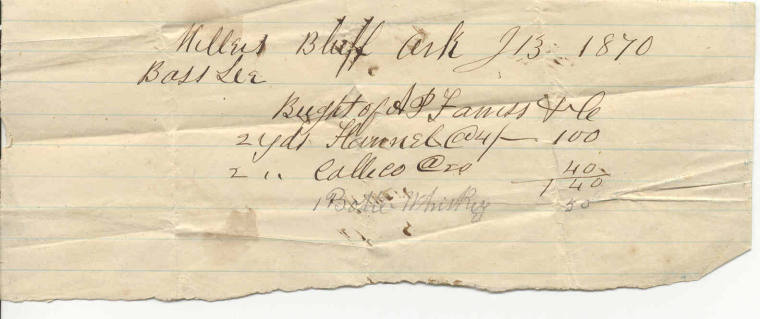 Millers Bluff Ark J 13 1870
Bass Lee
Bught of A P & Co
2 yds Flannel @ 4/- 100
2 " Callico @ 20 40
1 40
1 Bottle Whiskey 50